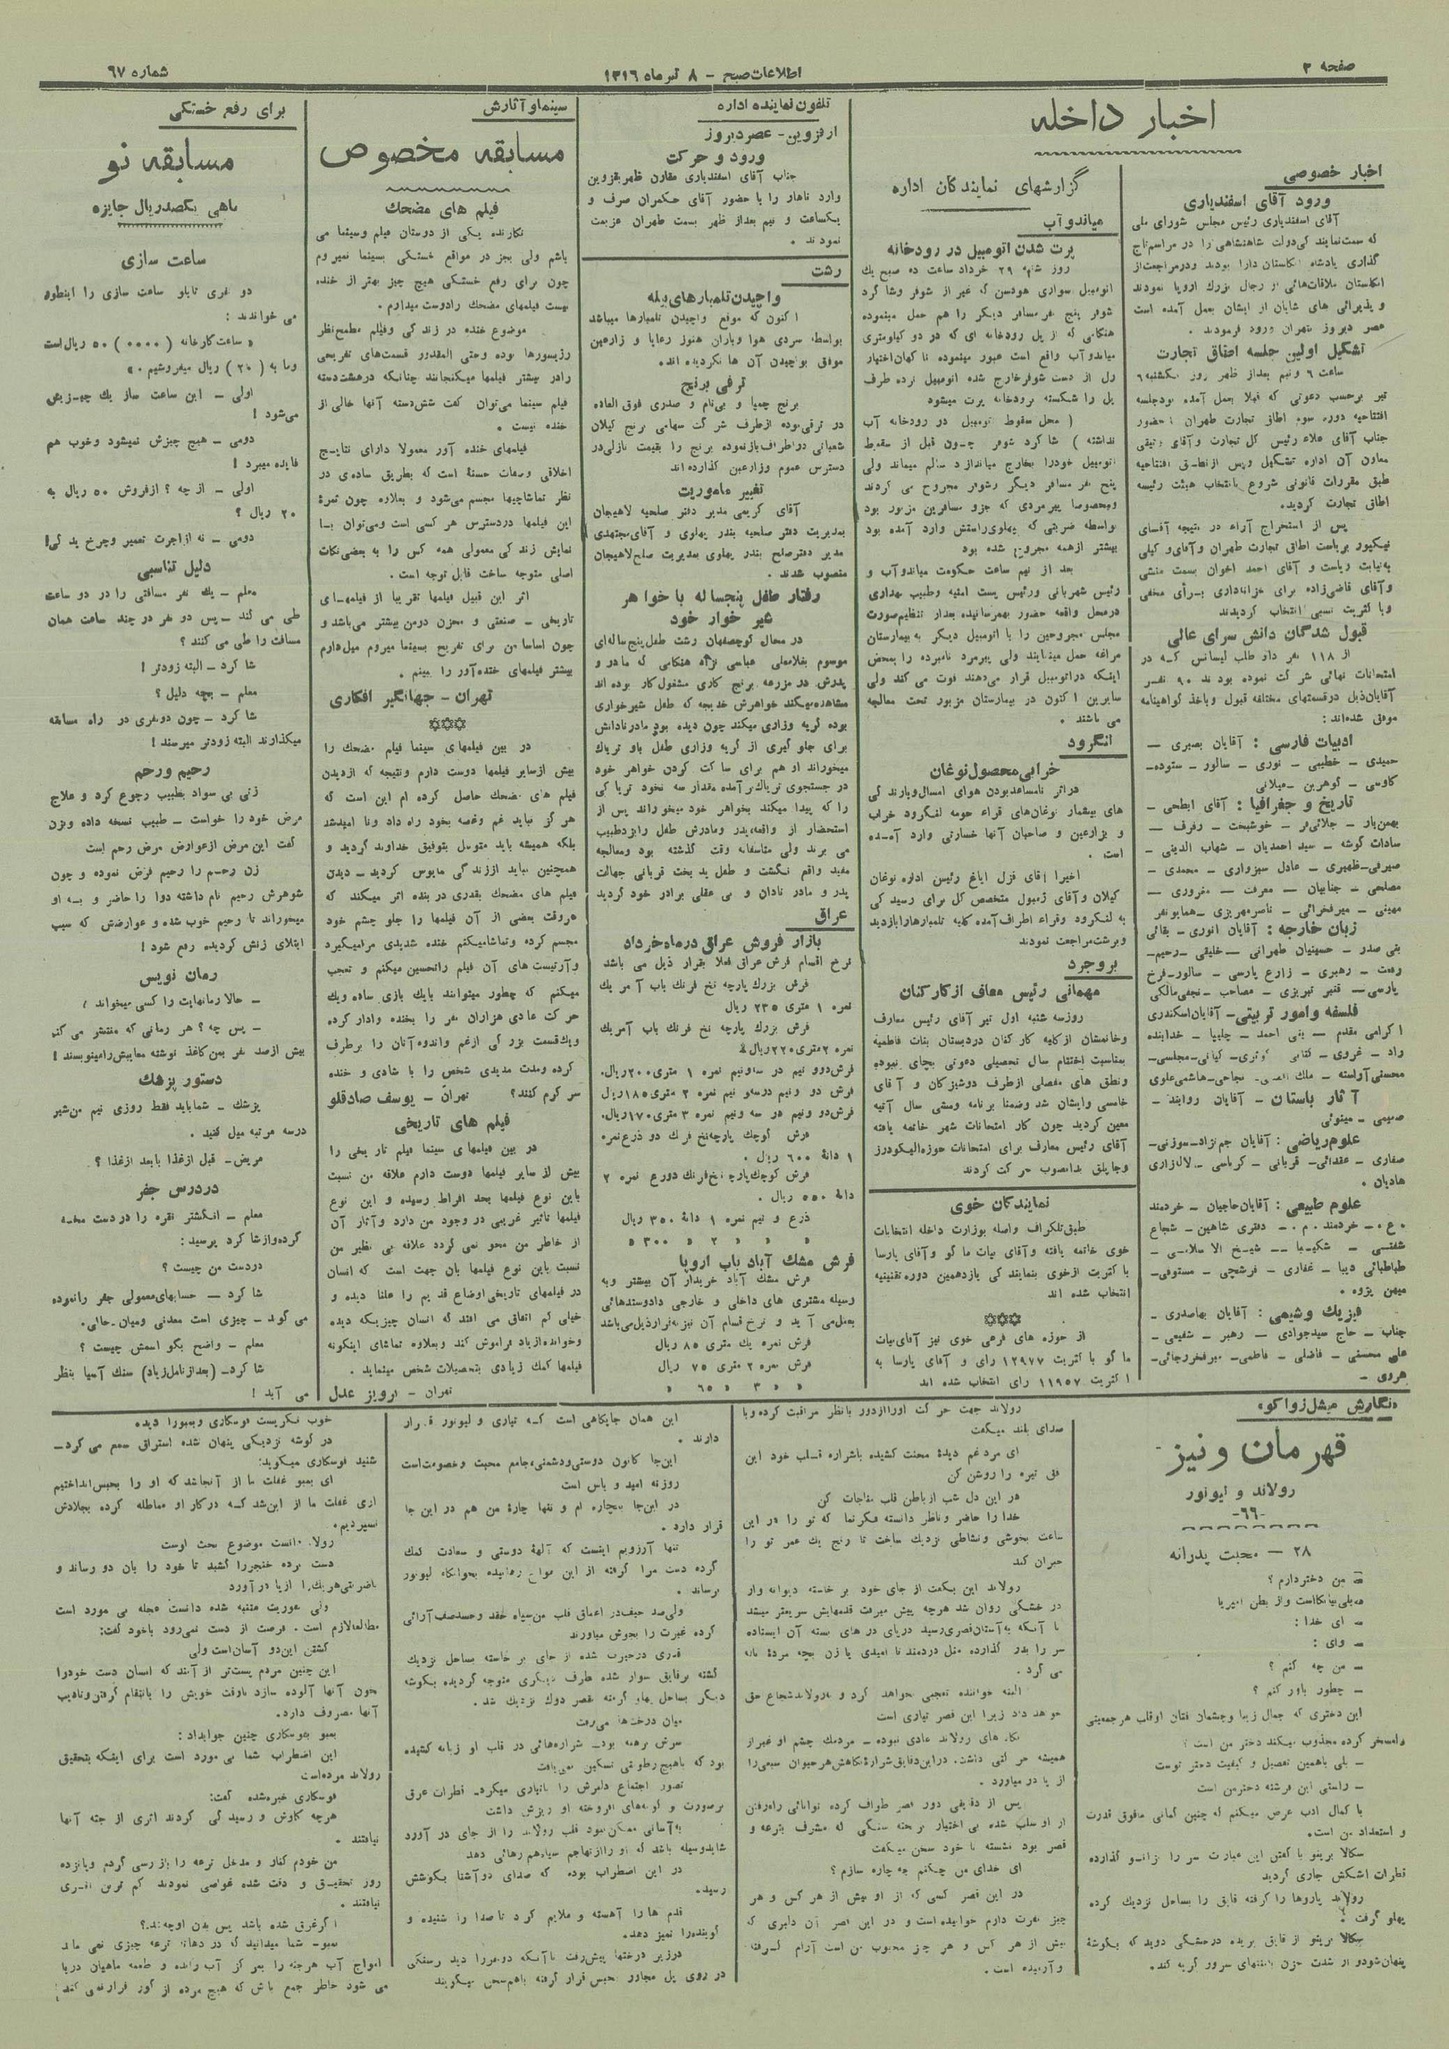 صفحه ۲
اطلاعات صبح - ۸ تیر ماه ۱۳۱۶
شماره ۶۷
اخبار داخله
اخبار خصوصی
ورود آقای اسفندیاری
آقای اسفندیاری رئیس مجلس شورای ملی
که سمت نمایندگی دولت شاهنشاهی را در مراسم تاج
گذاری پادشاه انگلستان دارا بودند ودرمراجعت از
انگلستان ملاقات‌هائی از رجال بزرگ اروپا نمودند
و پذیرائی های شایان از ایشان بعمل آمده است
عصر دیروز بتهران ورود فرمودند .
تشکیل اولین جلسه اطاق تجارت
ساعت ۶ ونیم بعداز ظهر روز یکشنبه ۶
تیر برحسب دعوتی که قبلا بعمل آمده بود جلسه
افتتاحیه دوره سوم اطاق تجارت طهران با حضور
جناب آقای علاء رئیس کل تجارت وآقای وثیقی
معاون آن اداره تشکیل وپس از نطق افتتاحیه
طبق مقررات قانونی شروع بانتخاب هیئت رئیسه
اطاق تجارت کردید.
پس از استخراج آراء در نتیجه آقای
نیکپور بریاست اطاق تجارت طهران وآقای وکیلی
به‌نیابت ریاست و آقای احمد اخوان بسمت منشی
وآقای قاضی‌زاده برای خزانه‌داری برأی مخفی
وبا کثریت نسبی انتخاب کردیدند
قبول شدگان دانش سرای عالی
از ۱۱۸ نفر داوطلب لیسانس که در
امتحانات نهائی شرکت نموده بودند ۹۰ نفر
آقایان‌ذیل درقسمتهای مختلفه قبول وباخذ گواهینامه
موفق شده‌اند :
ادبیات فارسی : آقایان بصیری –
حمیدی – خطیبی – نوری – سالور – ستوده–
کاوسی – گوهرین –میلانی
تاریخ و جغرافیا : آقای ابطحی –
بهمن‌یار – جلائی‌فر – خوشبخت – رفرف –
سادات گوشه – سید احمدیان – شهاب الدینی –
صیرفی–ظهیری – عادل سبزواری – محمدی –
مصلحی – جنابیان – معرفت – مغروری –
مهینی – میرفخرائی – ناصرمهریزی –همایونفر
زبان خارجه : آقایان انوری – بقائی
بنی صدر – حسینیان طهرانی –خلیقی –رحیم–
رفعت – رهبری – زارع پارسی – سالور–فرخ
پارسی– قنبر تبریزی – مصاحب – نجفی‌مالکی
فلسفه وامور تربیتی– آقایان‌اسکندری
اکرامی مقدم – بنی احمد – چلبیا – خدابنده
محسنی آراسته – نجاحی–هاشمی‌علوی
آثار باستان – آقایان روابند –
صمیمی – مینوئی
علوم ریاضی : آقایان جم‌نژاد–سوزنی–
صفاری – عقدائی– قربانی – کرباسی –لال‌زاری
هادیان .
علوم طبیعی : آقایان حاجیان – خردمند
ع . – خردمند . م . – دفتری شاهین – شجاع
شفتی – شکیبا – شیخ الاسلامی –
طباطبائی دیبا – غفاری – فرشچی – مستوفی–
میهن پژوه .
فیزیک و شیمی : آقایان بهاصدری –
جناب – حاج سیدجوادی – رهبر – شفیعی –
علی محسنی – فاضلی – فاطمی– میرفخررجائی–
هروی –
گزارشهای نمایندگان اداره
میاندوآب
پرت شدن اتومبیل در رودخانه
روز شنبه ۲۹ خرداد ساعت ده صبح یک
اتومبیل سواری هودسن که غیر از شوفر وشاگرد
شوفر پنج نفر مسافر دیگر را هم حمل مینموده
هنگامی که از پل رودخانه ای که در دو کیلومتری
میاندوآب واقع است عبور مینموده ناگهان‌اختیار
رل از دست شوفر خارج شده اتومبیل نرده طرف
پل را شکسته برودخانه پرت میشود
( محل سقوط اتومبیل در رودخانه آب
نداشته ) شاگرد شوفر چون قبل از سقوط
اتومبیل خودرا بخارج میاندازد سالم میماند ولی
پنج نفر مسافر دیگر وشوفر مجروح می گردند
ومخصوصا پیرمردی که جزو مسافرین مزبور بود
بواسطه ضربتی که بپهلوی راستش وارد آمده بود
بیشتر ازهمه مجروح شده بود
بعد از نیم ساعت حکومت میاندوآب و
رئیس شهربانی ورئیس پست امنیه وطبیب بهداری
درمحل واقعه حضور بهمرسانیده بعداز تنظیم‌صورت
مجلس مجروحین را با اتومبیل دیگر به بیمارستان
مراغه حمل مینمایند ولی پیرمرد نامبرده را بمحض
اینکه دراتومبیل قرار می‌دهند فوت می کند ولی
سایرین اکنون در بیمارستان مزبور تحت معالجه
می باشند .
لنگرود
خرابی محصول نوغان
دراثر نامساعدبودن هوای امسال‌وبارندگی
های بیشمار نوغان‌های قراء حومه لنگرود خراب
و بزارعین و صاحبان آنها خسارتی وارد آمده
است .
اخیرا آقای قزل ایاغ رئیس اداره نوغان
گیلان وآقای ژمبول متخصص کل برای رسیدگی
به لنگرود وقراء اطراف‌آمده کلیه تلمبارهارابازدید
وبرشت‌مراجعت نمودند
بروجرد
مهمانی رئیس معارف از کارکنان
روزسه شنبه اول تیر آقای رئیس معارف
وخانمشان ازکلیه کارکنان دردبستان بنات فاطمیه
بمناسبت اختتام سال تحصیلی دعوتی بجای نموده
ونطق های مفصلی ازطرف دوشیزگان و آقای
خامسی وایشان شد وضمنا برنامه ومشی سال آتیه
معین کردید چون کار امتحانات شهر خاتمه یافته
آقای رئیس معارف برای امتحانات حوزه‌الیگودرز
وجاپلق بدانصوب حرکت کردند
نمایندگان خوی
طبق‌تلگراف واصله بوزارت داخله انتخابات
خوی خاتمه یافته وآقای بیات ماکو وآقای پارسا
با کثریت ازخوی بنمایندگی یازدهمین دوره‌تقنینیه
انتخاب شده اند
از حوزه های فرعی خوی نیز آقای‌بیات
ماکو با کثریت ۱۲۹۷۷ رای و آقای پارسا به
اکثریت ۱۱۹۵۷ رای انتخاب شده اند
تلفون نماینده اداره
از قزوین - عصر دیروز
ورود و حرکت
جناب آقای اسفندیاری مقارن ظهر بقزوین
وارد ناهار را با حضور آقای حکمران صرف و
یکساعت و نیم بعداز ظهر بسمت طهران عزیمت
نمودند .
رشت
واچیدن تلمبارهای پیله
اکنون که موقع واچیدن تلمبارها میباشد
بواسطه سردی هوا وباران هنوز رعایا و زارعین
موفق بواچیدن آن ها نگردیده اند.
ترقی برنج
برنج چمپا و بی‌نام و صدری فوق العاده
در ترقی‌بوده ازطرف شرکت سهامی برنج گیلان
شعباتی دراطراف‌بازنموده برنج را بقیمت نازلی‌در
دسترس عموم وزارعین گذارده اند
تغییر ماموریت
آقای کریمی مدیر دفتر صلحیه لاهیجان
بمدیریت دفتر صلحیه بندر پهلوی و آقای‌مجتهدی
مدیر دفترصلح بندر پهلوی بمدیریت صلح‌لاهیجان
منصوب شدند .
رفتار طفل پنجساله با خواهر
شیر خوار خود
در محال کوچصفهان رشت طفل‌پنج‌ساله‌ای
موسوم بغلامعلی عباسی نژاد هنگامی که مادر و
پدرش در مزرعه برنج کاری مشغول‌کار بوده اند
مشاهده‌میکند خواهرش خدیجه که طفل شیرخواری
بوده گریه وزاری میکند چون دیده بود مادرنادانش
برای جلوگیری از گریه وزاری طفل باو تریاک
میخوراند او هم برای ساکت کردن خواهر خود
در جستجوی تریاک‌برآمده مقدار سه نخود تریاکی
را که پیدا میکند بخواهر خود میخوراند پس از
استحضار از واقعه‌پدر ومادرش طفل رابنزدطبیب
می برند ولی متاسفانه وقت گذشته بود ومعالجه
مفید واقع نگشت و طفل بدبخت قربانی جهالت
پدر و مادر نادان و بی عقلی برادر خود گردید
عراق
بازار فروش عراق درماه خرداد
نرخ اقسام فرش عراق فعلا بقرار ذیل می باشد
فرش بزرگ پارچه نخ فرنگ باب آمریک
نمره ۱ متری ۲۳۵ ریال
فرش بزرگ پارچه نخ فرنگ باب آمریک
نمره ۲متری ۲۲۰ریال
فرش‌دوو نیم در سه‌ونیم نمره ۱ متری ۲۰۰ریال.
فرش دو ونیم درسه‌و نیم نمره ۲ متری ۱۸۵ریال
فرش‌دو ونیم در سه ونیم نمره ۳ متری۱۷۰ریال.
فرش کوچک پارچه‌نخ فرنگ دو ذرع‌نمره
۱ دانهٔ ۶۰۰ ریال .
فرش کوچک‌پارچه نخ‌فرنگ دوزرع نمره ۲
دانهٔ ۵۵۰ ریال .
ذرع و نیم نمره ۱ دانهٔ ۳۵۰ ریال
» » » ۲ » ۳۰۰ »
فرش مشک آباد باب اروپا
فرش مشک آباد خریدار آن بیشتر وبه
وسیله مشتری های داخلی و خارجی دادوستدهائی
بعمل‌می آید و نرخ اقسام آن نیزبه‌قرارذیل‌می‌باشد
فرش نمره یک متری ۸۵ ریال
فرش نمره ۲ متری ۷۵ ریال
» » ۳ » ۶۵ »
سینما و آثارش
مسابقه مخصوص
فیلم های مضحک
نگارنده یکی از دوستان فیلم وسینما می
باشم ولی بجز در مواقع خستگی بسینما نمیروم
چون برای رفع خستگی هیچ چیز بهتر از خنده
نیست فیلمهای مضحک رادوست میدارم .
موضوع خنده در زندگی وفیلم مطمح‌نظر
رژیسورها بوده وحتی المقدور قسمت‌های تفریحی
رادر بیشتر فیلمها میگنجانند چنانکه درهشت‌دسته
فیلم سینما می‌توان گفت شش‌دسته آنها خالی از
خنده نیست .
فیلمهای خنده آور معمولا دارای نتایج
اخلاقی وصفات حسنهٔ است که بطریق ساده‌ی در
نظر تماشاچیها مجسم می‌شود و بعلاوه چون ثمرهٔ
این فیلمها دردسترس هر کسی است ومی‌توان بـا
نمایش زندگی معمولی همه کس را به بعضی‌نکات
اصلی متوجه ساخت قابل توجه است .
اثر این قبیل فیلمها تقریبا از فیلمهای
تاریخی – صنعتی و محزن درمن بیشتر می‌باشد و
چون اساسا من برای تفریح بسینما میروم میل‌دارم
بیشتر فیلمهای خنده‌آور را ببینم .
تهران – جهانگیر افکاری
در بین فیلمهای سینما فیلم مضحک را
بیش ازسایر فیلمها دوست دارم ونتیجه که ازدیدن
فیلم های مضحک حاصل کرده ام این است که
هرگز نباید غم وغصه بخود راه داد ونا امیدشد
بلکه همیشه باید متوسل بتوفیق خداوند گردید و
همچنین نباید اززندگی مایوس گردید – دیدن
فیلم های مضحک بقدری در بنده اثر میکند که
هروقت بعضی از آن فیلمها را جلو چشم خود
مجسم کرده وتماشامیکنم خنده شدیدی مرامیگیرد
وآرتیست های آن فیلم راتحسین میکنم و تعجب
میکنم که چطور میتوانند بایک بازی ساده ویک
حرکت عادی هزاران نفر را بخنده وادار کرده
ویک‌قسمت بزرگی ازغم واندوه آنان را برطرف
کرده ومدت مدیدی شخص را با شادی و خنده
سرگرم کنند؟ تهران – یوسف صادقلو
فیلم های تاریخی
در بین فیلمهای سینما فیلم تاریخی را
بیش از سایر فیلمها دوست دارم علاقه من نسبت
باین نوع فیلمها بحد افراط رسیده و این نوع
فیلمها تاثیر غریبی در وجود من دارد وآثار آن
از خاطر من محو نمی گردد علاقه بی نظیر من
نسبت باین نوع فیلمها بان جهت است که انسان
در فیلمهای تاریخی اوضاع قدیم را علنا دیده و
خیلی کم اتفاق می افتد که انسان چیزیکه دیده
وخوانده‌ازیاد فراموش کند وبعلاوه تماشای اینگونه
فیلمها کمک زیادی بتحصیلات شخص مینماید .
تهران – پرویز عدل
برای رفع خستگی
مسابقه نو
ماهی یکصد ریال جایزه
ساعت سازی
دو نفری تابلو ساعت سازی را اینطور
می خوانند :
« ساعت‌کارخانه (۰۰۰۰) ۵۰ ریال‌است
وما به ( ۲۰ ) ریال میفروشیم . »
اولی – این ساعت ساز یک چیزیش
می‌شود !
دومی – هیچ چیزش نمیشود وخوب هم
فایده میبرد !
اولی – از چه ؟ ازفروش ۵۰ ریال به
۲۰ ریال ؟
دومی – نه ازاجرت تعمیر وچرخ یدکی!
دلیل تناسبی
معلم – یک نفر مسافتی را در دو ساعت
طی می کند – پس دو نفر در چند ساعت همان
مسافت را طی می کنند ؟
شاگرد – البته زودتر !
معلم – بچه دلیل ؟
شاگرد – چون دونفری در راه مسابقه
میگذارند البته زودتر میرسند !
رحیم و رحم
زنی بی سواد بطبیب رجوع کرد و علاج
مرض خود را خواست – طبیب نسخه داده وبزن
گفت این مرض ازعوارض مرض رحم است
زن رحم را رحیم فرض نموده و چون
شوهرش رحیم نام داشته دوا را حاضر و به او
میخوراند تا رحیم خوب شده و عوارضش که سبب
ابتلای زنش گردیده رفع شود !
رمان نویس
– حالا رمانهایت را کسی میخواند ؟
– پس چه ؟ هر رمانی که منتشر می کنم
بیش ازصد نفر بمن‌کاغذ نوشته معایبش‌رامینویسند !
دستور پزشک
پزشک – شماباید فقط روزی نیم من‌شیر
درسه مرتبه میل کنید .
مریض– قبل ازغذا یابعد ازغذا ؟
در درس جفر
معلم – انگشتر نقره را در دست مخفی
کرده‌وازشاگرد پرسید:
دردست من چیست ؟
شاگرد – حسابهای‌معمولی جفر رانموده
می گوید – چیزی است معدنی ومیان‌خالی.
معلم – واضح بگو اسمش چیست ؟
شاگرد– (بعدازتامل‌زیاد) سنگ آسیا بنظر
می آید !
نگارش میشل زواکو»
قهرمان ونیز
رولاند و لیونور
–۶۶–
۲۸ – محبت پدرانه
– من دختردارم ؟
– بلی بیانکاست واز بطن امپریا
– ای خدا :
– وای :
– من چه کنم ؟
– چطور باور کنم ؟
این دختری که جمال زیبا وچشمان فتان اوقلب هرجمعیتی
رامسخر کرده مجذوب میکند دختر من است ؟
– بلی باهمین تفصیل و کیفیت دختر توست
– راستی این فرشته دخترمن است
با کمال ادب عرض میکنم که چنین گمانی مافوق قدرت
و استعداد من است.
سکالا برینو با گفتن این عبارت سر را بزانو گذارده
قطرات اشکش جاری گردید
رولاند پاروها را گرفته قایق را بساحل نزدیک کرده
پهلو گرفت :
سکالا برینو از قایق پریده درخشکی دوید که بگوشهٔ
پنهان‌شودو از شدت حزن یاانتهای سرور گریه کند.
رولاند جهت حرکت اوراازدور بانظر مراقبت کرده‌وبا
صدای بلند میگفت
ای مردغم دیدهٔ محنت کشیده باشراره قلب خود این
افق تیره را روشن کن
در این دل شب ازباطن قلب مناجات کن
خدا را حاضر وناظر دانسته فکرنما که تو را در این
ساعت بخوشی ونشاطی نزدیک ساخت تا رنج یک عمر تو را
جبران کند
رولاند این بگفت از جای خود برخاسته دیوانه وار
در خشکی روان شد هرچه پیش میرفت قدمهایش سریعتر میشد
تا آنکه به‌آستان‌قصری‌رسید درپای درهای بسته آن ایستاده
سر را بدر گذارده مثل دردمند ناامیدی یا زن بچه مردهٔ ناله
می کرد .
البته خواننده تعجبی نخواهد کرد و به‌رولاندشجاع حق
خواهد داد زیرا این قصر تیاری است
نگاه های رولاند عادی نبوده – مردمک چشم او غیراز
همیشه حرکتی داشت. دراین‌دقایق شرارهٔ‌نگاهش هرحیوان سبعی‌را
از پا در میاورد .
پس از دقیقی دور قصر طواف کرده توانائی راه‌رفتن
از او سلب شده بی اختیار برتخته سنگی که مشرف بترعه و
قصر بود نشسته با خود سخن میگفت
ای خدای من چکنم چه چاره سازم ؟
در این قصر کسی که از او بیش از هر کس و هر
چیز نفرت دارم خوابیده است و در این قصر آن دلبری که
بیش از هر کس و هر چیز محبوب من است آرام گرفته
وآرمیده است .
این همان جایگاهی است که تیاری و لیونور قرار
دارند .
این‌جا کانون دوستی‌ودشمنی،جامع محبت وخصومت‌است
روزنه امید و یاس است
در این‌جا بیچاره ام و تنها چارهٔ من هم در این جا
قرار دارد .
تنها آرزویم اینست که آلههٔ دوستی و سعادت کمک
کرده دست مرا گرفته از این رهانیده بخوابگاه لیونور
برساند .
ولی‌صد حیف‌در اعماق قلب من‌سپاه حقد وحسدصف‌آرائی
کرده غیرت را بجوش میاورند
قدری درحیرت شده از جای بر خاسته بساحل نزدیک
گشته برقایق سوار شده طرف دیگری متوجه گردیده بگوشه
دیگر بساحل پهلو گرفته بقصر دوک نزدیک شد .
میان درختها می‌رفت
سرش برهنه بود– شراره‌هائی در قلب او زبانه کشیده
بود که باهیچ رطوبتی تسکین نمی‌یافت
تصور اجتماع دلبرش را باتیاری میکرد– قطرات عرق
برصورت و گونه‌های افروخته او ریزش داشت
به‌آسانی ممکن‌نبود قلب رولاند را از جای در آورد
شایدوسیله باشد که او راازتهاجم سپاه‌هم رهائی دهد
در این اضطراب بوده که صدای دوآشنا بگوشش
رسید.
قدم ها را آهسته و ملایم کرد تا صدا را شنیده و
گوینده‌را تمیز دهد.
درزیر درختها پیش‌رفت تاآنکه دونفررا دید رسفکی
در روی پل مجاور محبس قرار گرفته باهم‌سخن میگویند
خوب نگریست فوسکاری وبمبورا دیده
در گوشه نزدیکی پنهان شده استراق سمع می کرد–
شنید فوسکاری میگوید:
ای بمبو غفلت ما از آنجاشد که او را بحبس‌انداختیم
آری غفلت ما از این‌شد که درکار او مماطله کرده بجلادش
نسپردیم.
رولاند دانست موضوع بحث اوست
دست برده خنجررا کشید تا خود را بان دو رساند و
باضربتی‌هریک را ازپا درآورد
ولی بفوریت متنبه شده دانست عجله بی مورد است
مطالعه‌لازم است. فرصت از دست نمی‌رود باخود گفت:
کشتن این‌دو آسان‌است ولی
این چنین مردم پست‌تر از آنند که انسان دست خودرا
بخون آنها آلوده سازد باوقت خویش را بانتقام گرفتن‌وتادیب
آنها مصروف دارد.
بمبو بفوسکاری چنین جوابداد :
این اضطراب شما بی مورد است برای اینکه بتحقیق
رولاند مرده‌است
فوسکاری خیره‌شده گفت:
هرچه کاوش و رسیدگی کردند اثری از جثه آنها
نیافتند .
من خودم کنار و مدخل ترعه را بازرسی کردم وپانزده
روز تحقیق و دقت شده غواصی نمودند کم ترین اثری
نیافتند .
اگرغرق شده باشد پس بدن اوچه‌شد؟
بمبو– شما میدانید که در دهانه ترعه چیزی نمی ماند
امواج آب هرچه را بمرکز آب رانده و طعمه ماهیان دریا
می شود خاطر جمع باش که هیچ مرده از گور فرارنمی کند !